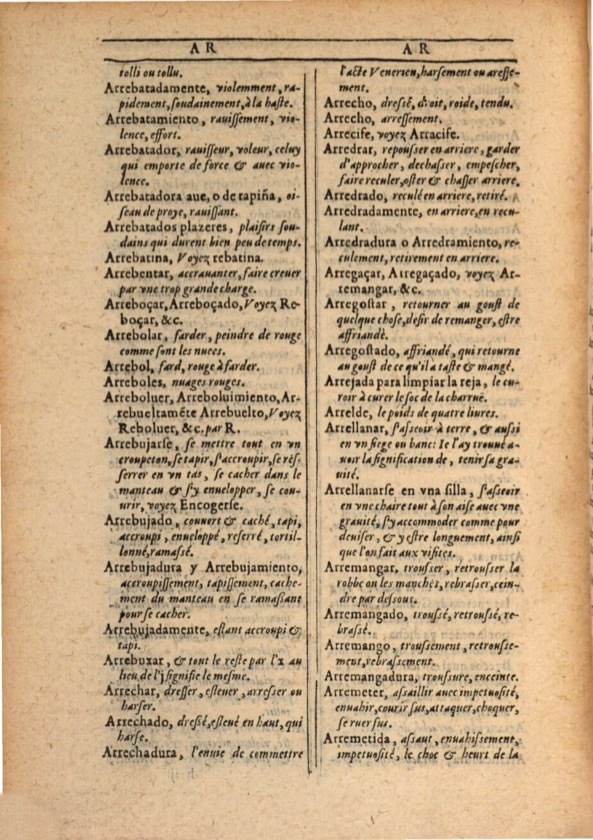 A R
tolli ou tollu.
Arrebatadamente, violemment, ra-
pidement, soudainement, à la haste.
Arrebatamiento, rauissement, vio-
lence, effort.
Arrebatador, rauisseur, voleur, celuy
qui emporte de force & auec vio-
lence.
Arrebatadora aue, o de rapiña, oi-
seau de proye, rauissant.
Arrebatados plazeres, plaisirs sou-
dains qui durent bien peu de temps.
Arrebatina, Voyez rebatina.
Arrebentar, accrauanter, faire creuer
par vne trop grande charge.
Arreboçar, Arreboçado, Voyez Re-
boçar, &c.
Arrebolar, farder, peindre de rouge
comme sont les nuees.
Arrebol, fard, rouge à farder.
Arreboles, nuages rouges.
Arreboluer, Arreboluimiento, Ar-
rebueltamẽte Arrebuelto, Voyez
Reboluer, &c. par R.
Arrebujarse, se mettre tout en vn
croupeton, se tapir, s'accroupir, se res-
serrer en vn tas, se cacher dans le
manteau & s'y enuelopper, se cou-
urir, voyez Encogerse.
Arrebujado, couuert & caché, tapi,
accroupi, enueloppé, reserré, tortil-
lonné, ramassé.
Arrebujadura y Arrebujamiento,
accroupissement, tapissement, cache-
ment du manteau en se ramaßant
pour se cacher.
Arrebujadamente, estant accroupi &
tapi.
Arrebuxar, & tout le reste par l'x au
lieu de l'j signifie le mesme.
Arrechar, dresser, esleuer, arresser ou
harser.
Arrechado, dressé, esleué en haut, qui
harse.
Arrechadura, l'enuie de commettre
A R
l'acte Venerien, harsement ou aresse-
ment.
Arrecho, dressé, droit, roide, tendu.
Arrecho, arressement.
Arrecife, voyez Arracife.
Arredrar, repousser en arriere, garder
d'approcher, dechasser, empescher,
faire reculer, oster & chasser arriere.
Arredrado, reculé en arriere, retiré.
Arredradamente, en arriere, en recu-
lant.
Arredradura o Arredramiento, re-
culement, retirement en arriere.
Arregaçar, Arregaçado, voyez Ar-
remangar, &c.
Arregostar, retourner au goust de
quelque chose, desir de remanger, estre
affriandé.
Arregostado, affriandé, qui retourne
au goust de ce qu'il a tasté & mangé.
Arrejada para limpiar la reja, le cu-
roir à curer le soc de la charruë.
Arrelde, le poids de quatre liures.
Arrellanar, s'asseoir à terre, & aussi
en vn siege ou banc: Ie l'ay trouué a-
uoir la signification de, tenir sa gra-
uité.
Arrellanarse en vna silla, s'asseoir
en vne chaire tout à son aise auec vne
grauité, s'y accommoder comme pour
deuiser, & y estre longuement, ainsi
que l'on fait aux visites.
Arremangar, trousser, retrousser la
robbe ou les manches, rebrasser, cein-
dre par dessous.
Arremangado, troussé, retroussé, re-
brassé.
Arremango, troussement, retrousse-
ment, rebrassement.
Arremangadura, troussure, enceinte.
Arremeter, assaillir auec impetuosité,
enuahir, courir sus, attaquer, choquer,
se ruer sus.
Arremetida, assaut, enuahissement,
impetuosité, le choc & heurt de la